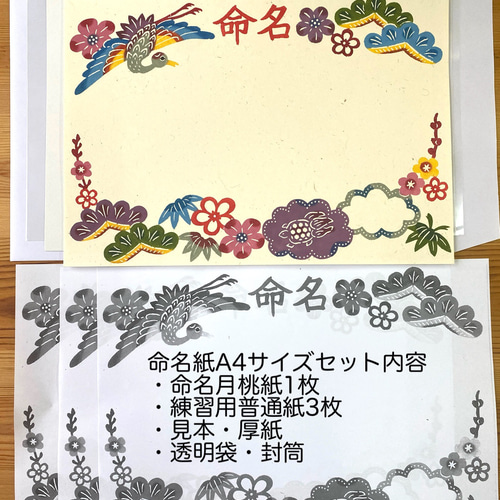 命名
命名
命名紙A4サイズセット内容
・命名月桃紙1枚
・練習用普通紙3枚
・見本・厚紙
・透明袋・封筒